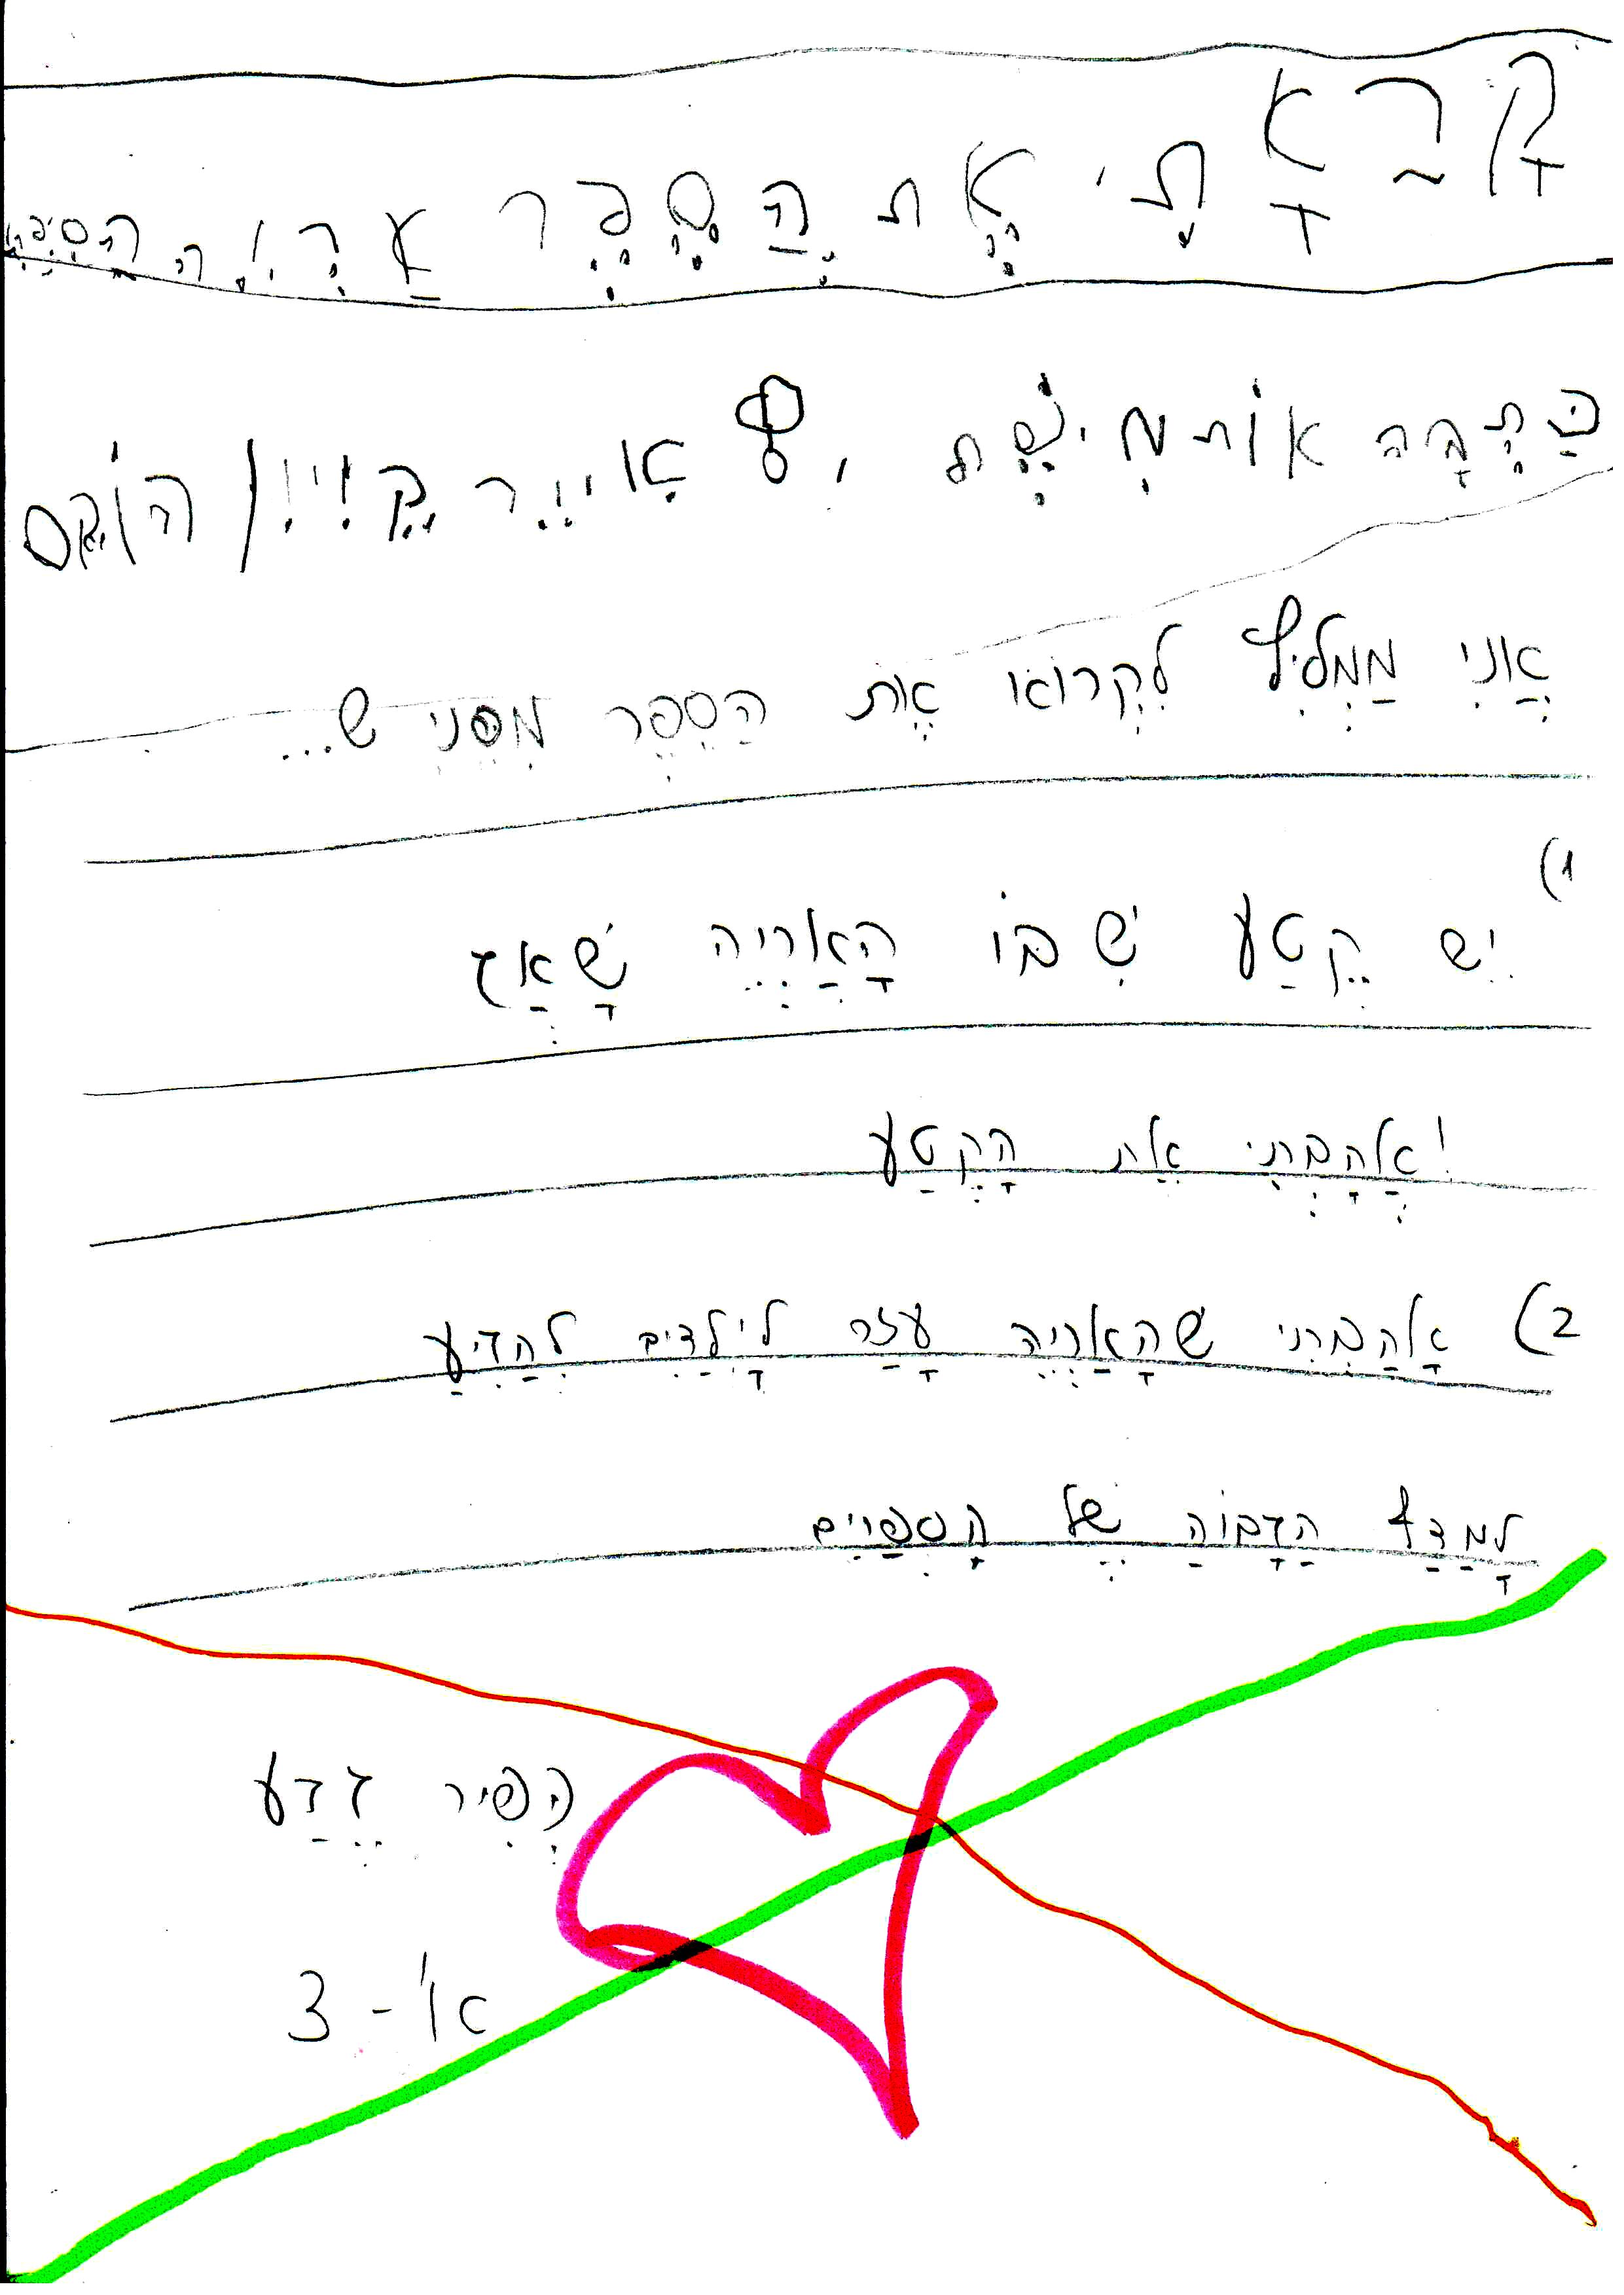 קָרָאתִי אֶת הַסֵפֶר אַרְיֵה הַסִפְרִ
כַּתְבָה אוֹתמִישֶׁת , אִוייֵר קֵוִוין הוֹקֵס
אֲנִי מַמְלִיץ לִקְרוֹא אֶת הַסֵפֶר מִפְּנֵי ש...
(1
יֵש קֵטַע שֶׁבּוֹ הָאַרְיֵה שָׁאַג
!אֲהָבְתִי אֵת הָקֶטַע
(2 אָהַבְתִּי שֶׁהָאַרְיֵה עָזַר לִילָדִים לְהַגִיעַ
לָמַדַף הַגָבוֹהַ שֶׁל הָסְפָרִים
כְּפִיר גֶדַע
א'- 3